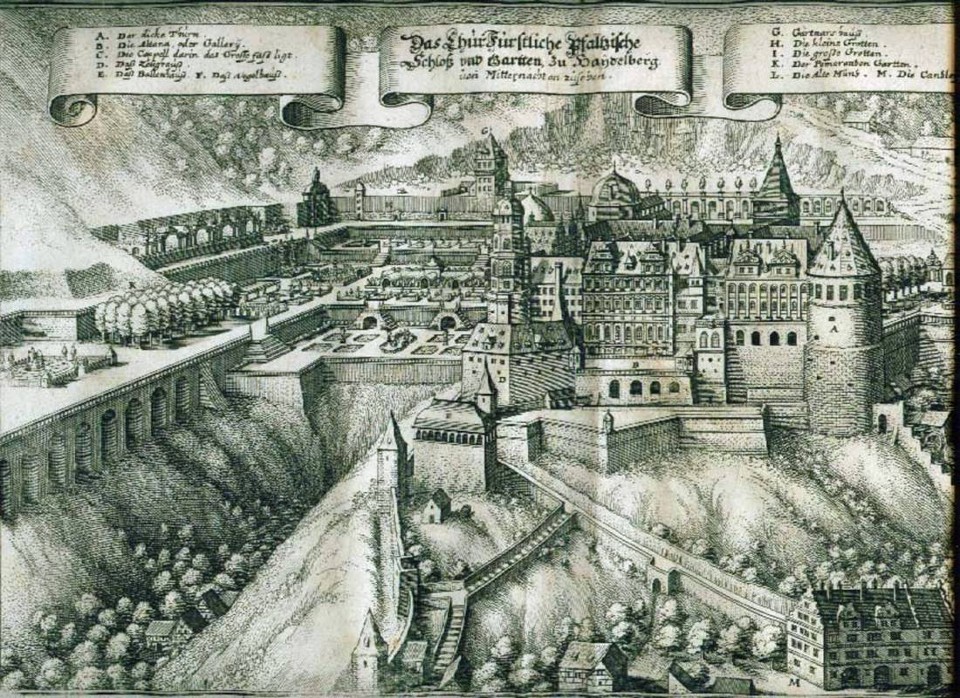 A. Der dicke Thurn
B. Die Altana, oder Gallery.
C. Die Cappell darin das Grosse fass ligt
D. Dass Zeughauss
E. Dass Ballenhauss. F. Dass
Das ChurFürstliche Pfaltzische
Schloss und Gartten, Zu Haydelberg
von Mitternacht an zusehen.
G. Gärtners hauss
H. Die kleine Grotten.
I. Die grosse Grotten.
K. Der Pomerantzen Gartten.
L. Die Alte Müns. M. Die Cantzle
G
A
D
K
M